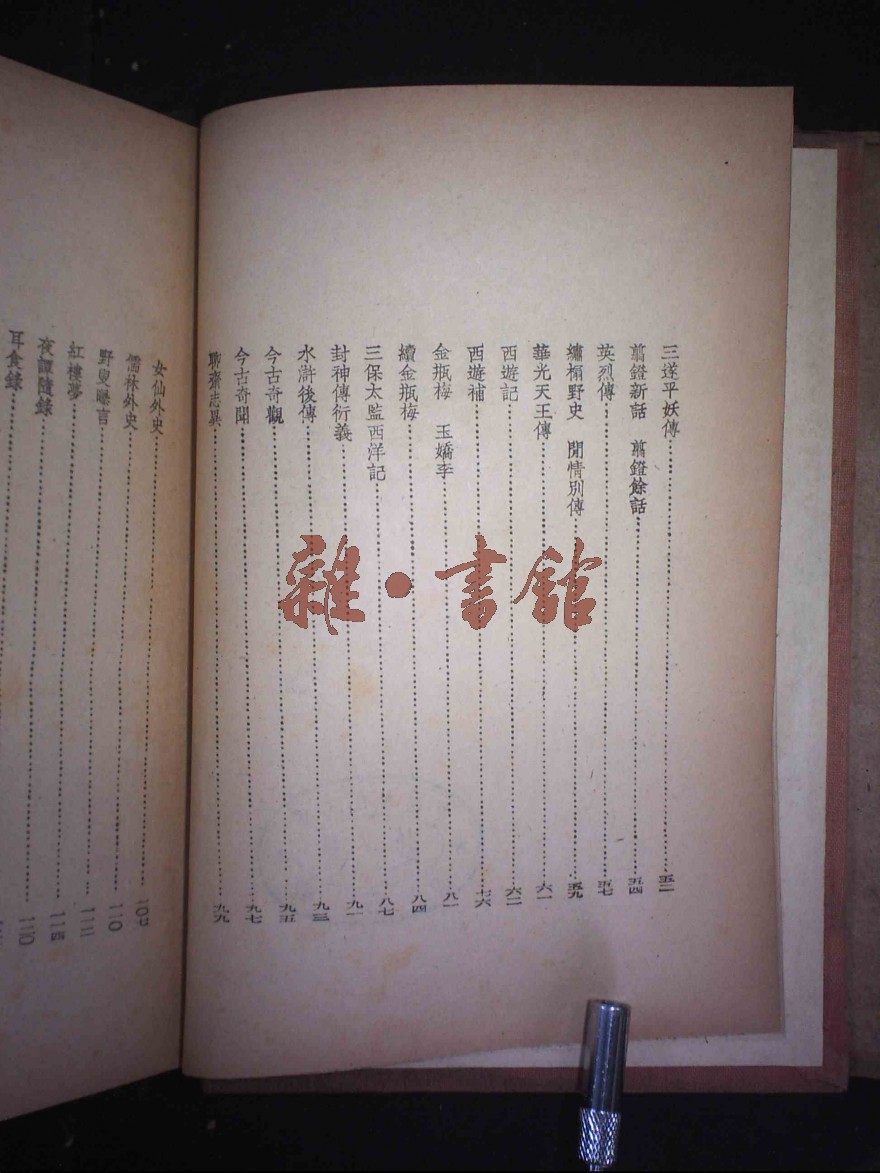 三遂平妖傳 五二
翦鐙新話 翦鐙餘話 五四
英烈傳 五七
繡榻野史 閒情別傳 五九
華光天王傳 六一
西遊記 六二
西遊補 七六
金瓶梅 玉嬌李 八一
續金瓶梅 八四
三保太監西洋記 八七
封神傳衍義 九一
水滸後傳 九三
今古奇觀 九五
今古奇聞 九七
聊齋志異 九九
女仙外史 一〇七
儒林外史
野叟曝言 一一〇
紅樓夢 一一一
夜譚隨錄 一一四
耳食錄 一二〇
雜·書館